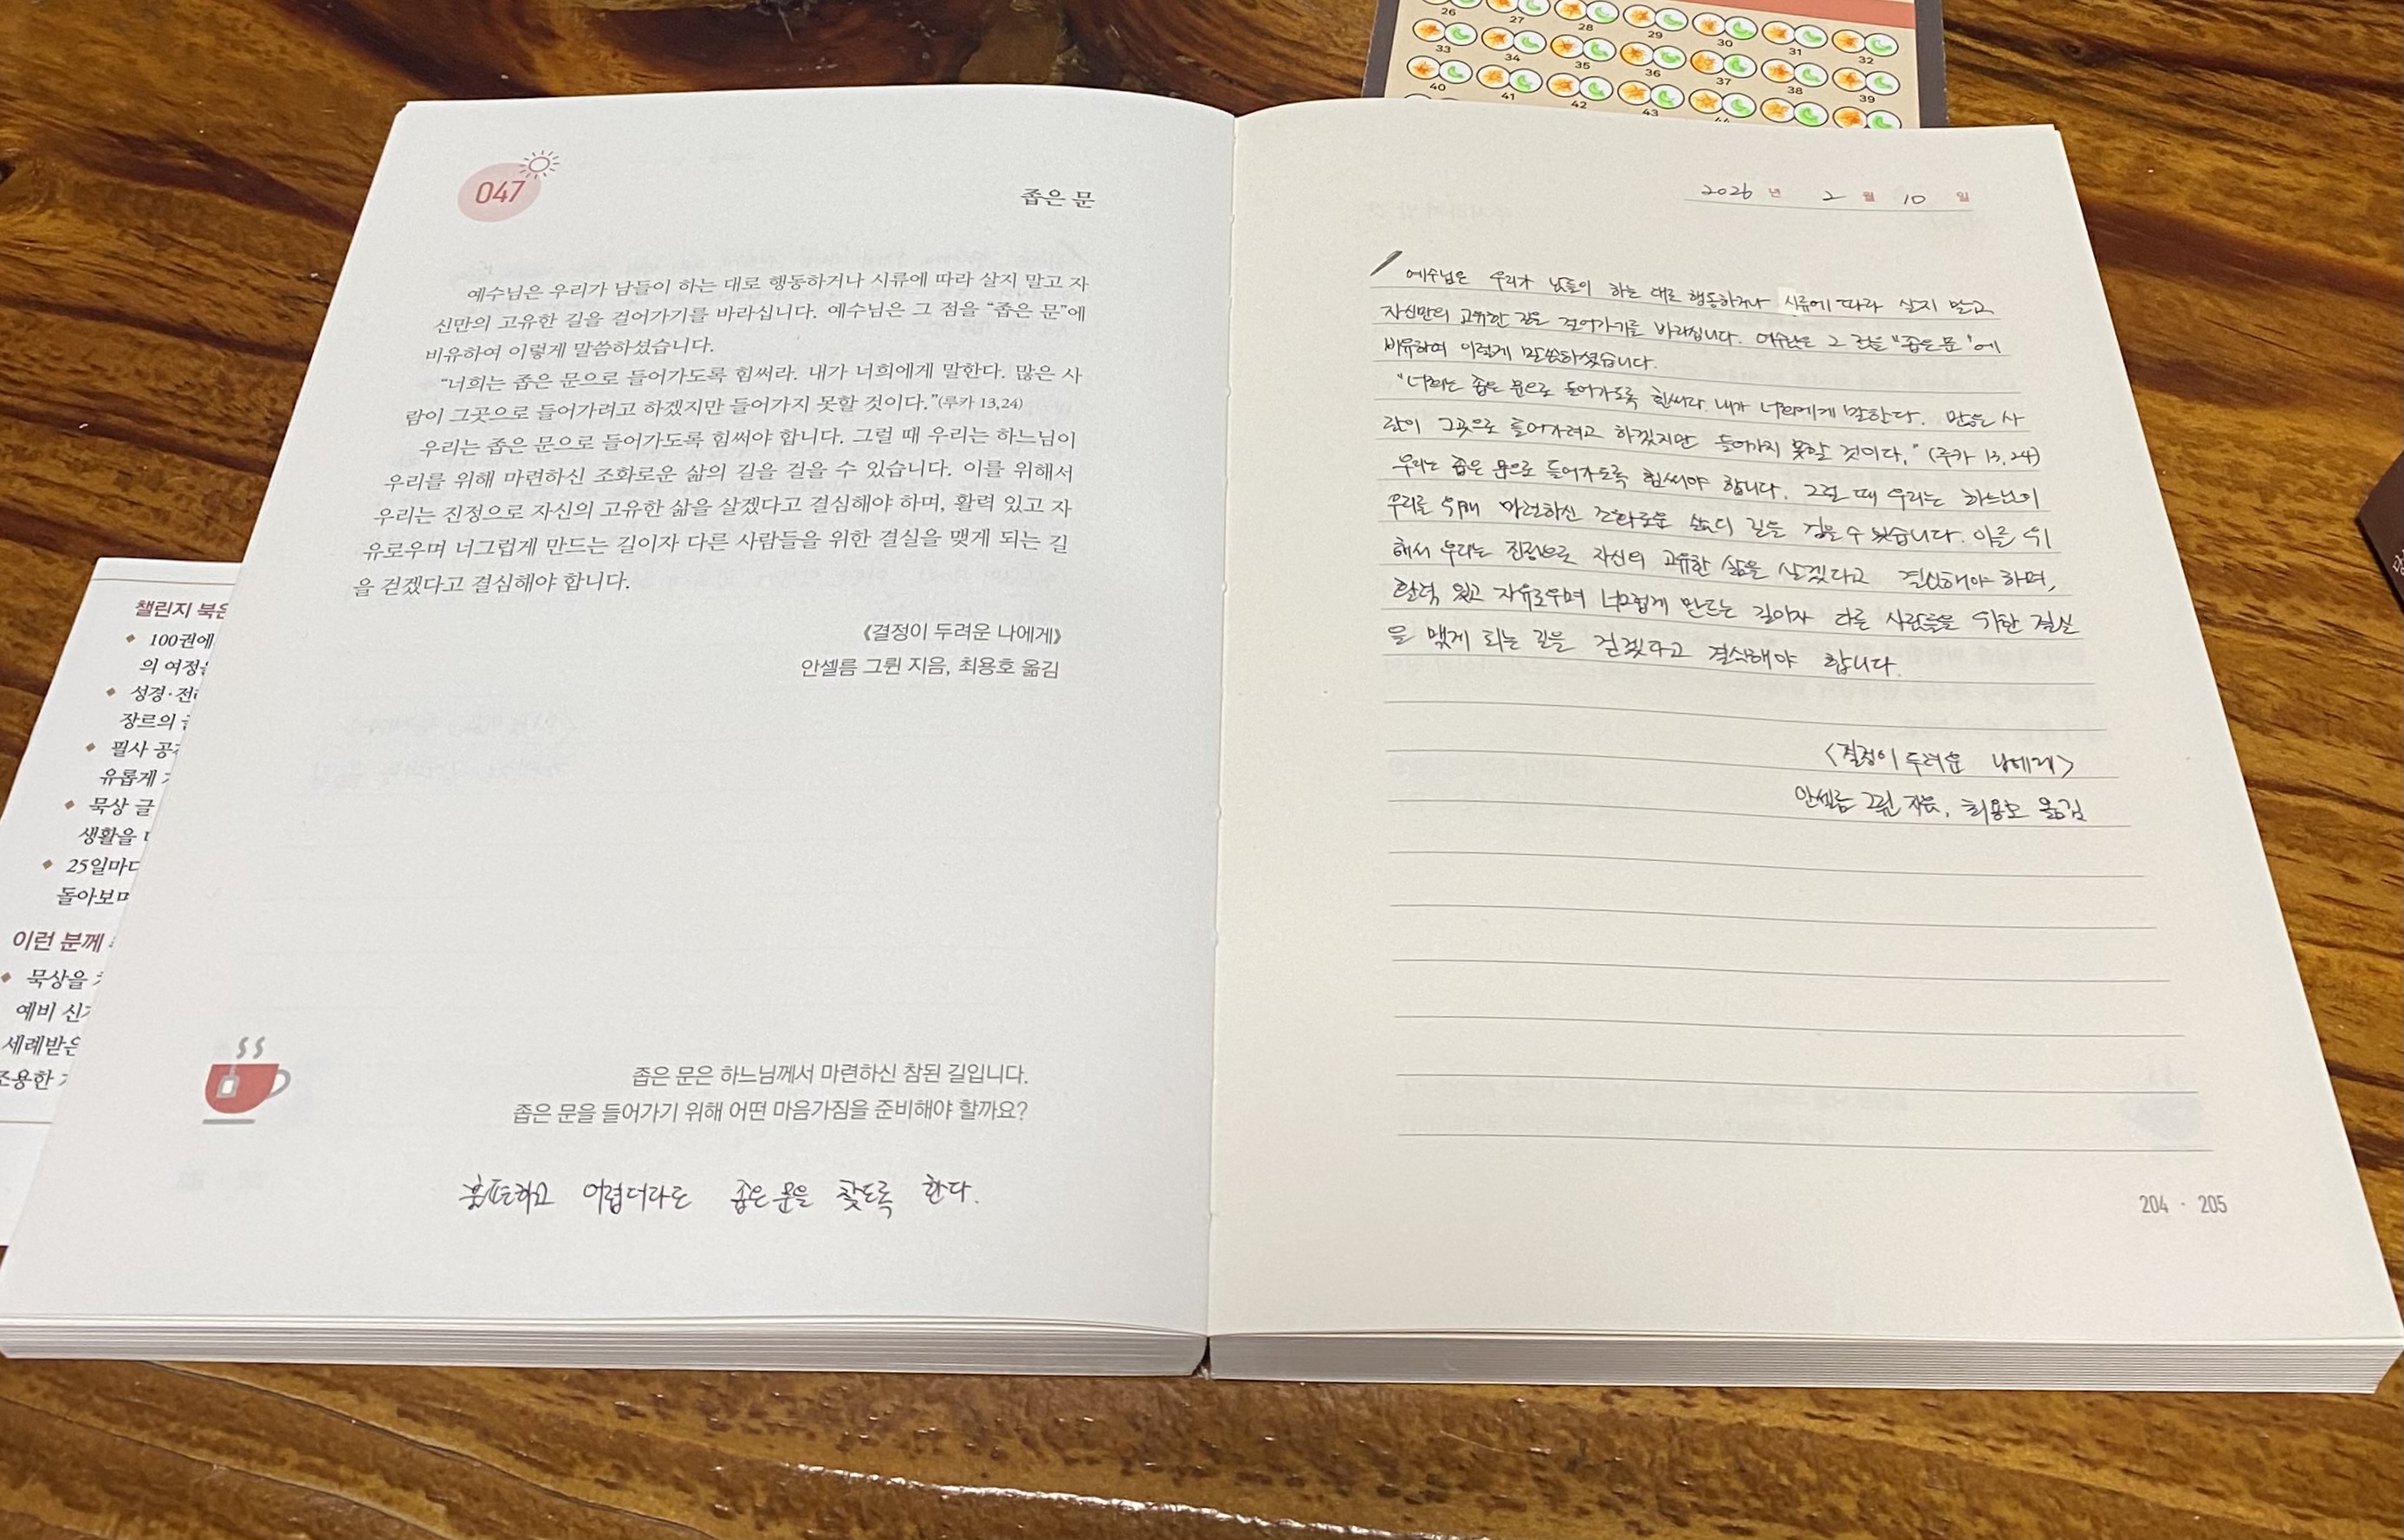 26 27 28 29 30 31 32
33 34 35 36 37 38 39
40 41 42 43 44
047
좁은 문
예수님은 우리가 남들이 하는 대로 행동하거나 시류에 따라 살지 말고 자
신만의 고유한 길을 걸어가기를 바라십니다. 예수님은 그 점을 “좁은 문”에
비유하여 이렇게 말씀하셨습니다.
“너희는 좁은 문으로 들어가도록 힘써라. 내가 너희에게 말한다. 많은 사
람이 그곳으로 들어가려고 하겠지만 들어가지 못할 것이다.”(루카 13,24)
우리는 좁은 문으로 들어가도록 힘써야 합니다. 그럴 때 우리는 하느님이
우리를 위해 마련하신 조화로운 삶의 길을 걸을 수 있습니다. 이를 위해서
우리는 진정으로 자신의 고유한 삶을 살겠다고 결심해야 하며, 활력 있고 자
유로우며 너그럽게 만드는 길이자 다른 사람들을 위한 결실을 맺게 되는 길
을 걷겠다고 결심해야 합니다.
《결정이 두려운 나에게》
안셀름 그륀 지음, 최용호 옮김
좁은 문은 하느님께서 마련하신 참된 길입니다.
좁은 문을 들어가기 위해 어떤 마음가짐을 준비해야 할까요?
어렵더라도 좁은 문을 찾도록 한다.
2026 년 2 월 10 일
예수님은 우리가 남들이 하는 대로 행동하거나 시류에 따라 살지 말고
자신만의 고유한 길을 걸어가기를 바라십니다. 예수님은 그 점을 “좁은 문”에
비유하여 이렇게 말씀하셨습니다.
“너희는 좁은 문으로 들어가도록 힘써라. 내가 너희에게 말한다. 많은 사
람이 그곳으로 들어가려고 하겠지만 들어가지 못할 것이다.” (루카 13,24)
우리는 좁은 문으로 들어가도록 힘써야 합니다. 그럴 때 우리는 하느님이
우리를 위해 마련하신 조화로운 삶의 길을 걸을 수 있습니다. 이를 위
해서 우리는 진정으로 자신의 고유한 삶을 살겠다고 결심해야 하며,
활력 있고 자유로우며 너그럽게 만드는 길이자 다른 사람들을 위한 결실
을 맺게 되는 길을 걷겠다고 결심해야 합니다.
<결정이 두려운 나에게>
안셀름 그륀 지음, 최용호 옮김
204 · 205
챌린지 북은
100권에
의 여정을
성경·전
장르의
필사 공
유롭게
묵상 글
생활을
25일마다
돌아보며
이런 분께
묵상을
예비 신
세례받은
조용한